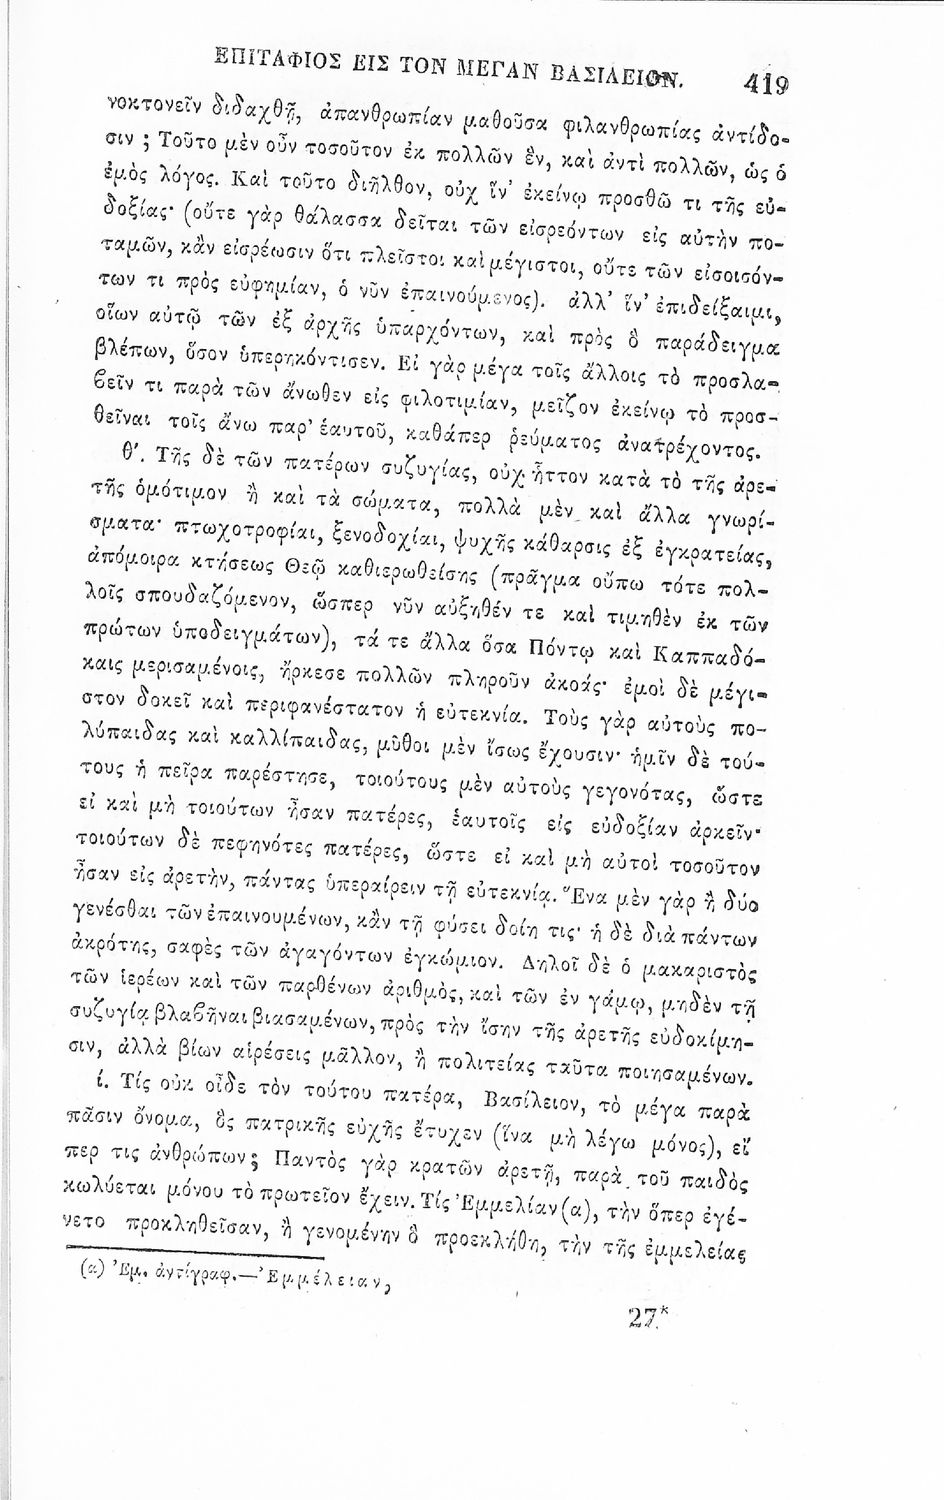 ΕΠΙΤΑΦΙΟΣ ΕΙΣ ΤΟΝ ΜΕΓΑΝ ΒΑΣΙΛΕΙΟΝ. 419
νοκτονεῖν διδαχθῇ, ἀπανθρωπίαν μαθοῦσα φιλανθρωπίας ἀντίδο-
σιν ; Τοῦτο μὲν οὖν τοσοῦτον ἐκ πολλῶν ἓν, καὶ ἀντὶ πολλῶν, ὡς ὁ
ἐμὸς λόγος. Καὶ τοῦτο διῆλθον, οὐχ ἵν' ἐκείνῳ προσθῶ τι τῆς εὐ-
δοξίας· (οὔτε γὰρ θάλασσα δεῖται τῶν εἰσρεόντων εἰς αὐτὴν πο-
ταμῶν, κἂν εἰσρέωσιν ὅτι πλεῖστοι καὶ μέγιστοι, οὔτε τῶν εἰσοισόν-
των τι πρὸς εὐφημίαν, ὁ νῦν ἐπαινούμενος). ἀλλ' ἵν' ἐπιδείξαιμι,
οἵων αὐτῷ τῶν ἐξ ἀρχῆς ὑπαρχόντων, καὶ πρὸς ὃ παράδειγμα
βλέπων, ὅσον ὑπερηκόντισεν. Εἰ γὰρ μέγα τοῖς ἄλλοις τὸ προσλα-
βεῖν τι παρὰ τῶν ἄνωθεν εἰς φιλοτιμίαν, μεῖζον ἐκείνῳ τὸ προσ-
θεῖναι τοῖς ἄνω παρ' ἑαυτοῦ, καθάπερ ῥεύματος ἀνατρέχοντος.
θ'. Τῆς δὲ τῶν πατέρων συζυγίας, οὐχ ἧττον κατὰ τὸ τῆς ἀρε-
τῆς ὁμότιμον ἢ καὶ τὰ σώματα, πολλὰ μὲν καὶ ἄλλα γνωρί-
σματα· πτωχοτροφίαι, ξενοδοχίαι, ψυχῆς κάθαρσις ἐξ ἐγκρατείας,
ἀπόμοιρα κτήσεως Θεῷ καθιερωθείσης (πρᾶγμα οὔπω τότε πολ-
λοῖς σπουδαζόμενον, ὥσπερ νῦν αὐξηθέν τε καὶ τιμηθὲν ἐκ τῶν
πρώτων ὑποδειγμάτων), τά τε ἄλλα ὅσα Πόντῳ καὶ Καππαδό-
καις μερισαμένοις, ἤρκεσε πολλῶν πληροῦν ἀκοάς· ἐμοὶ δὲ μέγι-
στον δοκεῖ καὶ περιφανέστατον ἡ εὐτεκνία. Τοὺς γὰρ αὐτοὺς πο-
λύπαιδας καὶ καλλίπαιδας, μῦθοι μὲν ἴσως ἔχουσιν· ἡμῖν δὲ τού-
τους ἡ πεῖρα παρέστησε, τοιούτους μὲν αὐτοὺς γεγονότας, ὥστε
εἰ καὶ μὴ τοιούτων ἦσαν πατέρες, ἑαυτοῖς εἰς εὐδοξίαν ἀρκεῖν·
τοιούτων δὲ πεφηνότες πατέρες, ὥστε εἰ καὶ μὴ αὐτοὶ τοσοῦτον
ἦσαν εἰς ἀρετὴν, πάντας ὑπεραίρειν τῇ εὐτεκνίᾳ. Ἕνα μὲν γὰρ ἢ δύο
γενέσθαι τῶν ἐπαινουμένων, κἂν τῇ φύσει δοίη τις· ἡ δὲ διὰ πάντων
ἀκρότης, σαφὲς τῶν ἀγαγόντων ἐγκώμιον. Δηλοῖ δὲ ὁ μακαριστὸς
τῶν ἱερέων καὶ τῶν παρθένων ἀριθμὸς, καὶ τῶν ἐν γάμῳ, μηδὲν τῇ
συζυγίᾳ βλαβῆναι βιασαμένων, πρὸς τὴν ἴσην τῆς ἀρετῆς εὐδοκίμη-
σιν, ἀλλὰ βίων αἱρέσεις μᾶλλον, ἢ πολιτείας ταῦτα ποιησαμένων.
ί. Τίς οὐκ οἶδε τὸν τούτου πατέρα, Βασίλειον, τὸ μέγα παρὰ
πᾶσιν ὄνομα, ὃς πατρικῆς εὐχῆς ἔτυχεν (ἵνα μὴ λέγω μόνος), εἴ
περ τις ἀνθρώπων; Παντὸς γὰρ κρατῶν ἀρετῇ, παρὰ τοῦ παιδὸς
κωλύεται μόνου τὸ πρωτεῖον ἔχειν. Τίς Ἐμμελίαν (α), τὴν ὅπερ ἐγέ-
νετο προκληθεῖσαν, ἢ γενομένην ὃ προεκλήθη, τὴν τῆς ἐμμελείας
(α) Ἐμ. ἀντίγραφ.—Ἐμμέλειαν,
27.*